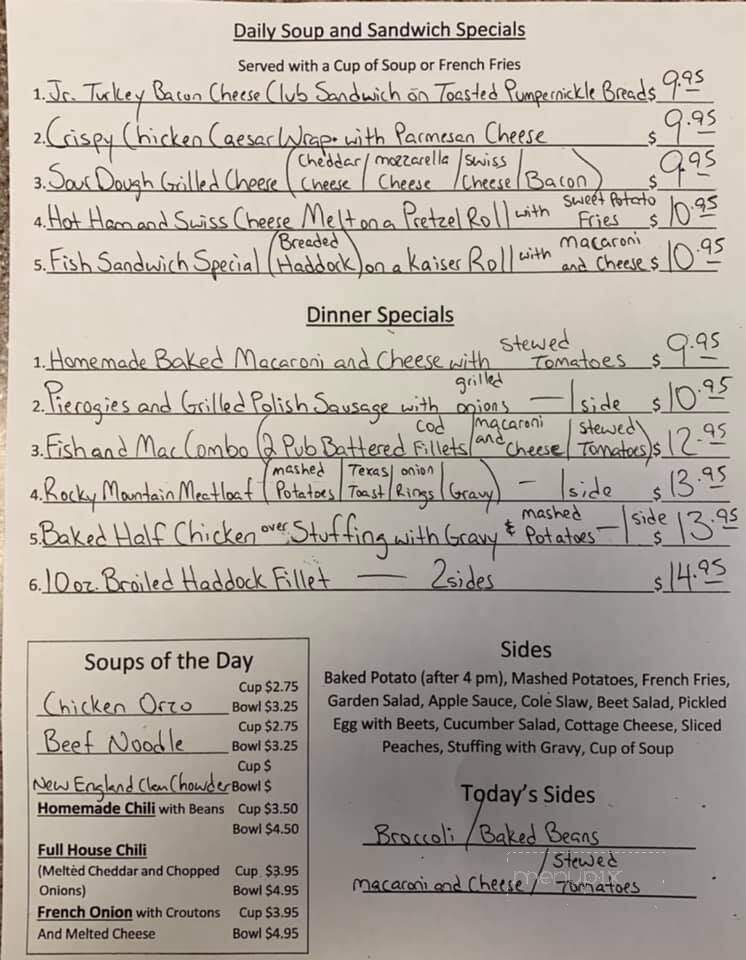 Daily Soup and Sandwich Specials
Served with a Cup of Soup or French Fries
1. Jr. Turkey Bacon Cheese Club Sandwich on Toasted Pumpernickle Bread $ 9.95
2. Crispy Chicken Caesar Wrap with Parmesan Cheese $ 9.95
3. Sour Dough Grilled Cheese (Cheddar Cheese/mozzarella Cheese/Swiss Cheese/Bacon) $ 9.95
4. Hot Ham and Swiss Cheese Melt on a Pretzel Roll with Sweet Potato Fries $ 10.95
5. Fish Sandwich Special (Breaded Haddock) on a Kaiser Roll with macaroni and Cheese $ 10.95
Dinner Specials
1. Homemade Baked Macaroni and Cheese with Stewed Tomatoes $ 9.95
2. Pierogies and Grilled Polish Sausage with grilled onions — 1 side $ 10.95
3. Fish and Mac Combo (2 Pub Battered Cod Fillets/macaroni and Cheese/Stewed Tomatoes) $ 12.95
4. Rocky Mountain Meatloaf (mashed Potatoes/Texas Toast/onion Rings/Gravy) — 1 side $ 13.95
5. Baked Half Chicken over Stuffing with Gravy & mashed Potatoes — 1 side $ 13.95
6. 10 oz. Broiled Haddock Fillet — 2 sides $ 14.95
Soups of the Day
Chicken Orzo Cup $2.75
Bowl $3.25
Beef Noodle Cup $2.75
Bowl $3.25
Cup $
New England Clam Chowder Bowl $
Homemade Chili with Beans Cup $3.50
Bowl $4.50
Full House Chili
(Melted Cheddar and Chopped Cup $3.95
Onions) Bowl $4.95
French Onion with Croutons Cup $3.95
And Melted Cheese Bowl $4.95
Sides
Baked Potato (after 4 pm), Mashed Potatoes, French Fries,
Garden Salad, Apple Sauce, Cole Slaw, Beet Salad, Pickled
Egg with Beets, Cucumber Salad, Cottage Cheese, Sliced
Peaches, Stuffing with Gravy, Cup of Soup
Today's Sides
Broccoli / Baked Beans
macaroni and Cheese / Stewed Tomatoes
menupix